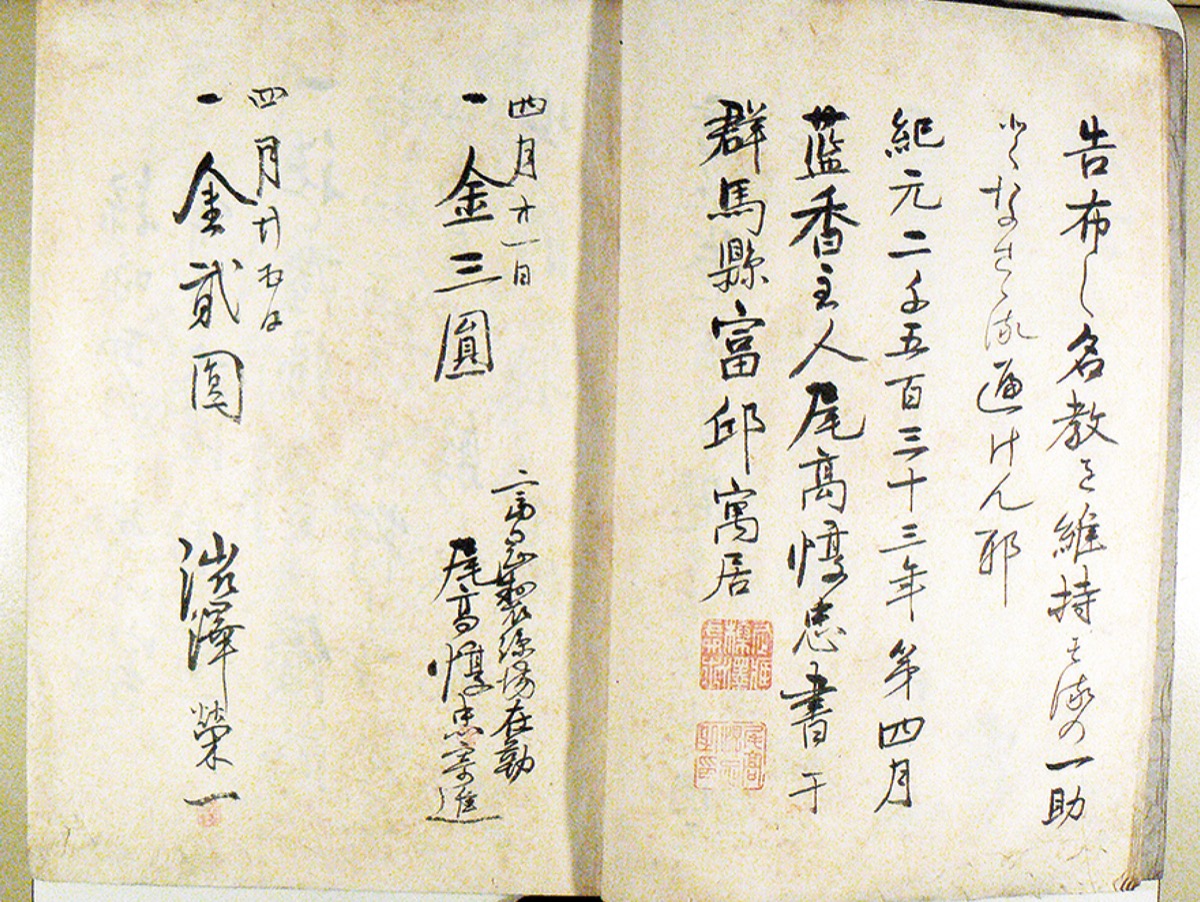 告布し名教を維持する の一助
となさゝる 遍けん耶
紀元二千五百三十三年第四月
藍香主人尾高惇忠書于
群馬縣富邱寓居
四月廿一日
一金三圓
富岡製絲場在勤
尾高惇忠寄進
四月廿五日
一金貳圓
渋澤榮一